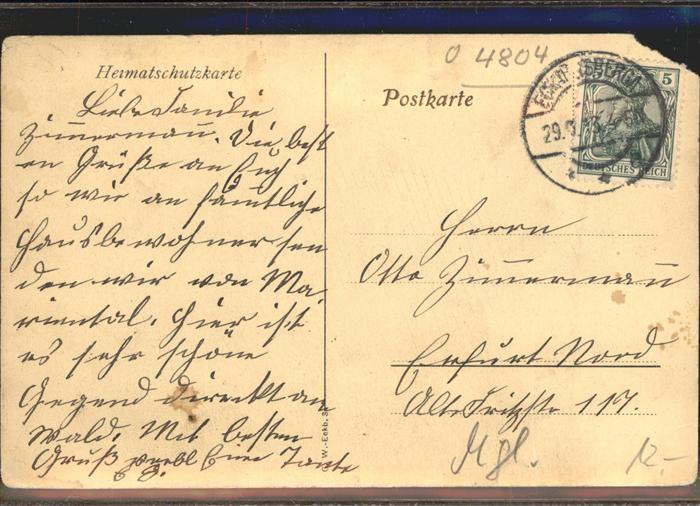 Heimatschutzkarte
Liebe Familie
Zimmermann. Die best
en Grüße an Euch
so wie an sämtliche
Hausbewohner sen
den wir von Ma
riental. Hier ist
es sehr schöne
Gegend direckt am
Wald. Mit besten
Gruß Eure Tante
W.-Eckb. S.
0 4804
Postkarte
ECKARTSBERGA
29.
5
DEUTSCHES REICH
Herrn
Otto Zimmermann
Erfurt Nord
Alte Fritzstr 117.
Mgl.
12-